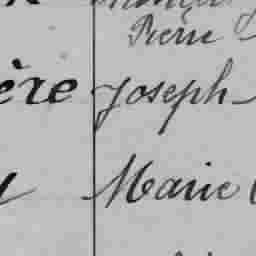 Pierre
ère Joseph
Marie